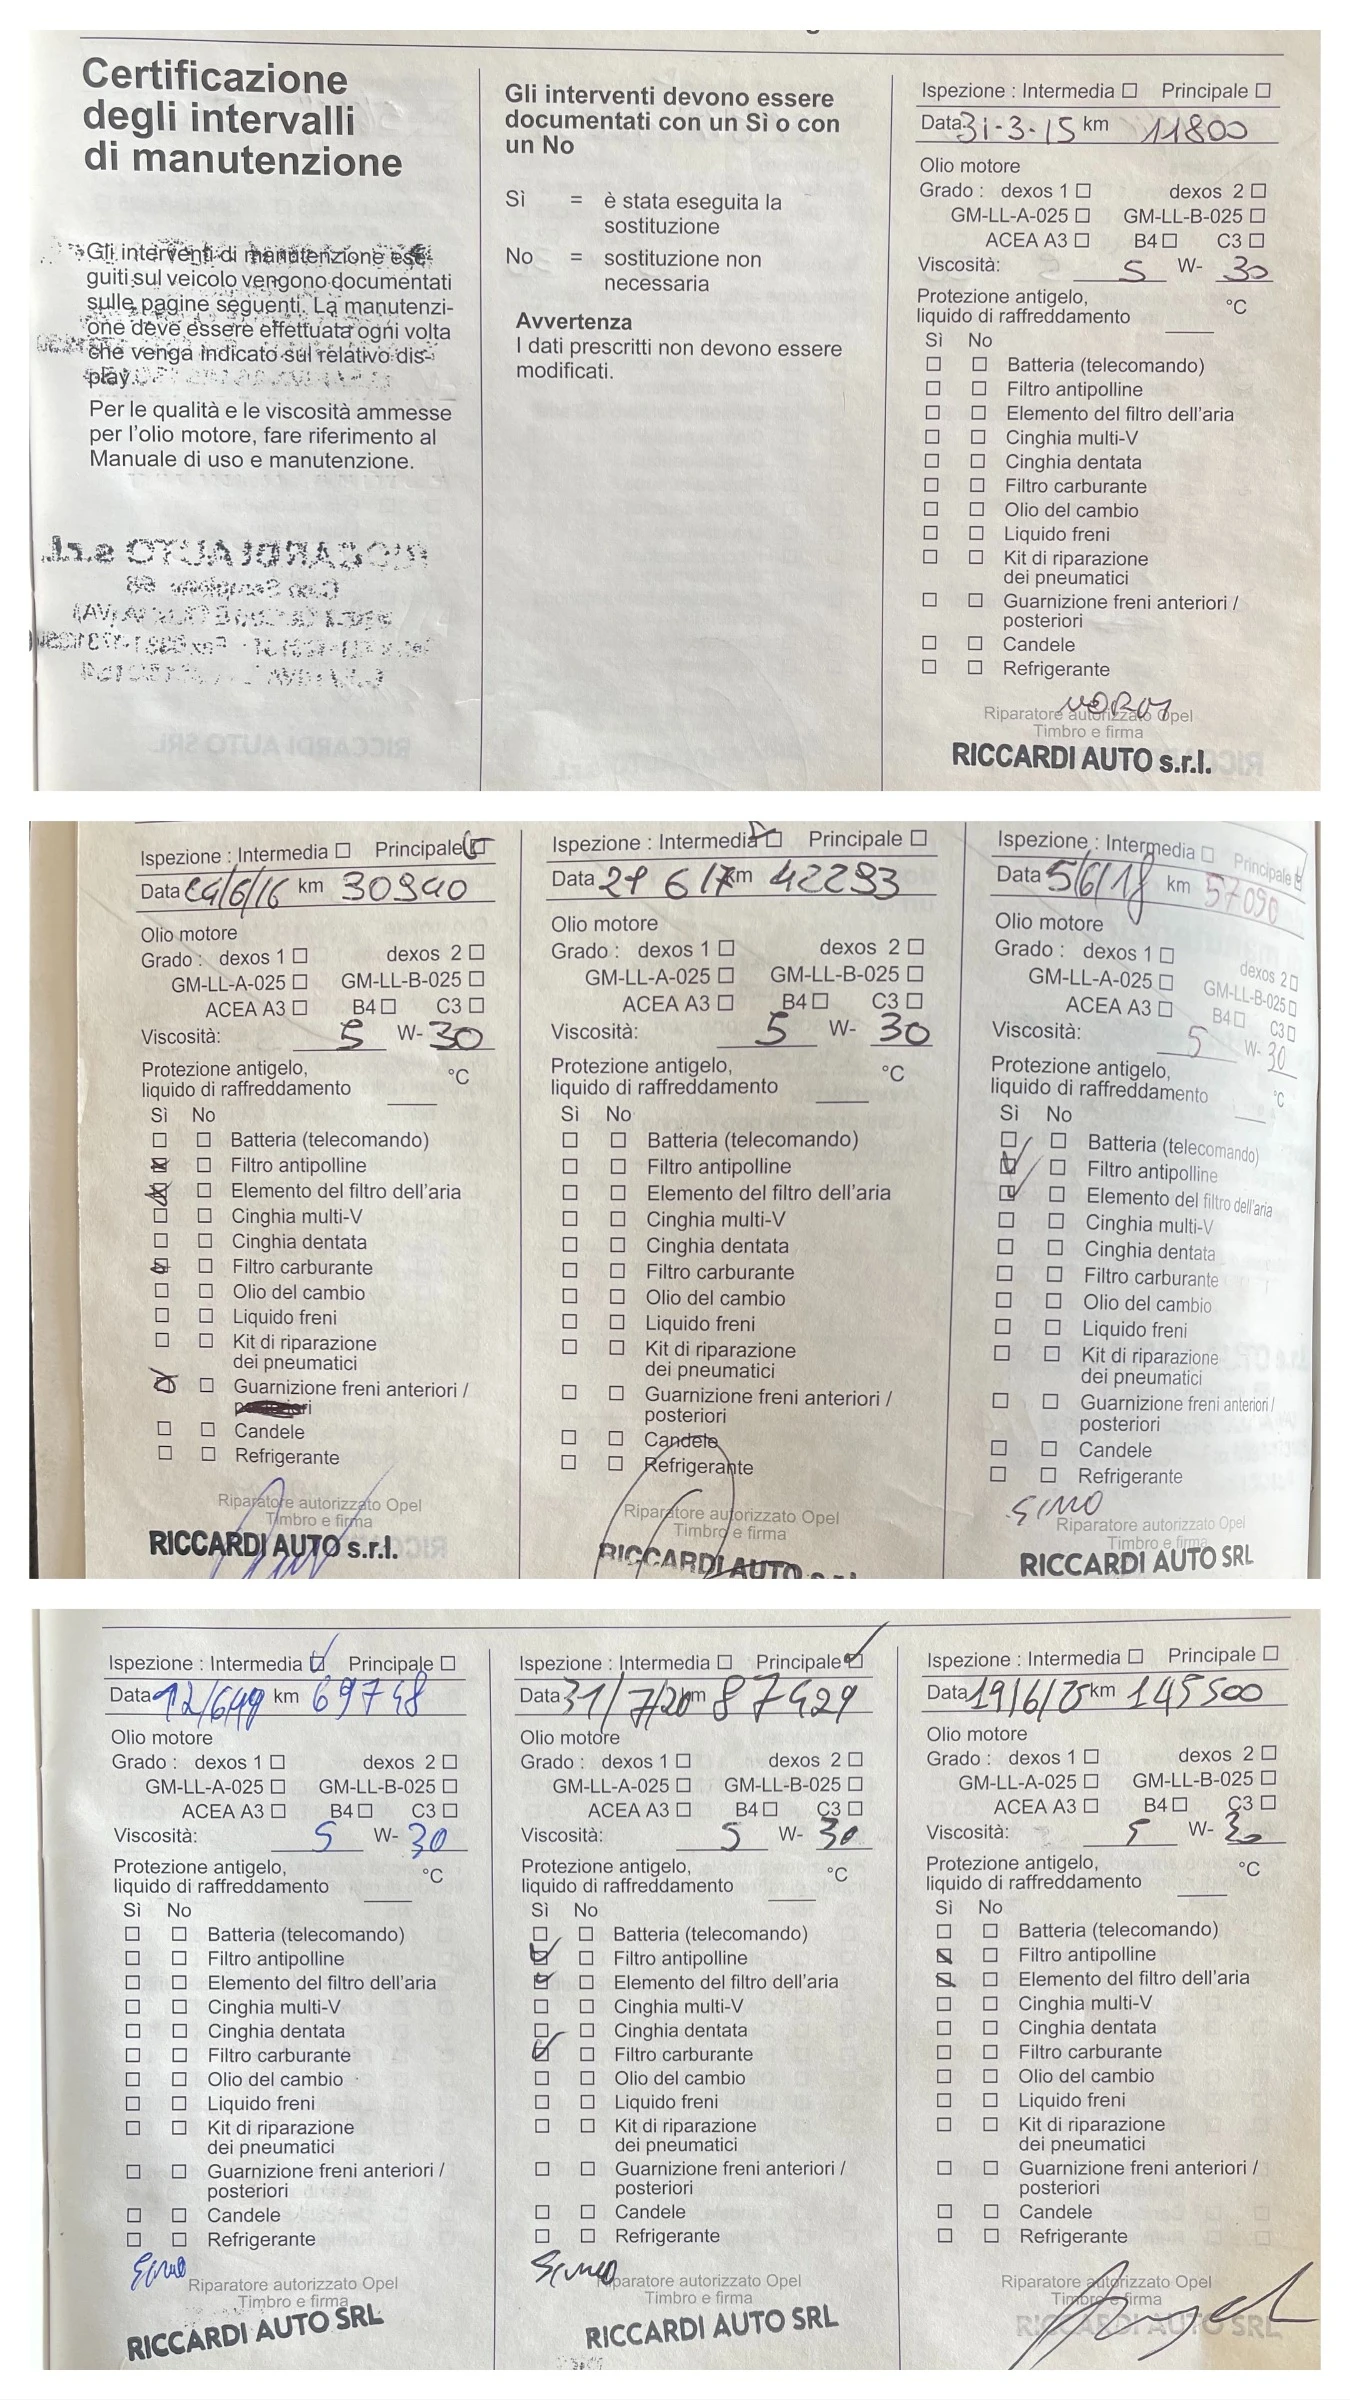 Certificazione
degli intervalli
di manutenzione
Gli interventi di manutenzione ese-
guiti sul veicolo vengono documentati
sulle pagine seguenti. La manutenzi-
one deve essere effettuata ogni volta
che venga indicato sul relativo dis-
play.
Per le qualità e le viscosità ammesse
per l'olio motore, fare riferimento al
Manuale di uso e manutenzione.
RICCARDI AUTO s.r.l.
RICCARDI AUTO SRL
Gli interventi devono essere
documentati con un Sì o con
un No
Sì = è stata eseguita la
sostituzione
No = sostituzione non
necessaria
Avvertenza
I dati prescritti non devono essere
modificati.
Ispezione : Intermedia ☐ Principale ☐
Data 31-3-15 km 11800
Olio motore
Grado : dexos 1 ☐ dexos 2 ☐
GM-LL-A-025 ☐ GM-LL-B-025 ☐
ACEA A3 ☐ B4 ☐ C3 ☐
Viscosità: 5 W- 30
Protezione antigelo,
liquido di raffreddamento °C
Sì No
☐ ☐ Batteria (telecomando)
☐ ☐ Filtro antipolline
☐ ☐ Elemento del filtro dell'aria
☐ ☐ Cinghia multi-V
☐ ☐ Cinghia dentata
☐ ☐ Filtro carburante
☐ ☐ Olio del cambio
☐ ☐ Liquido freni
☐ ☐ Kit di riparazione
dei pneumatici
☐ ☐ Guarnizione freni anteriori /
posteriori
☐ ☐ Candele
☐ ☐ Refrigerante
Riparatore autorizzato Opel
Timbro e firma
RICCARDI AUTO s.r.l.
Ispezione : Intermedia ☐ Principale ☑
Data 24/6/16 km 30940
Olio motore
Grado : dexos 1 ☐ dexos 2 ☐
GM-LL-A-025 ☐ GM-LL-B-025 ☐
ACEA A3 ☐ B4 ☐ C3 ☐
Viscosità: 5 W- 30
Protezione antigelo,
liquido di raffreddamento °C
Sì No
☐ ☐ Batteria (telecomando)
☒ ☐ Filtro antipolline
☒ ☐ Elemento del filtro dell'aria
☐ ☐ Cinghia multi-V
☐ ☐ Cinghia dentata
☒ ☐ Filtro carburante
☐ ☐ Olio del cambio
☐ ☐ Liquido freni
☐ ☐ Kit di riparazione
dei pneumatici
☒ ☐ Guarnizione freni anteriori /
posteriori
☐ ☐ Candele
☐ ☐ Refrigerante
Riparatore autorizzato Opel
Timbro e firma
RICCARDI AUTO s.r.l.
Ispezione : Intermedia ☑ Principale ☐
Data 29 6 17 km 42293
Olio motore
Grado : dexos 1 ☐ dexos 2 ☐
GM-LL-A-025 ☐ GM-LL-B-025 ☐
ACEA A3 ☐ B4 ☐ C3 ☐
Viscosità: 5 W- 30
Protezione antigelo,
liquido di raffreddamento °C
Sì No
☐ ☐ Batteria (telecomando)
☐ ☐ Filtro antipolline
☐ ☐ Elemento del filtro dell'aria
☐ ☐ Cinghia multi-V
☐ ☐ Cinghia dentata
☐ ☐ Filtro carburante
☐ ☐ Olio del cambio
☐ ☐ Liquido freni
☐ ☐ Kit di riparazione
dei pneumatici
☐ ☐ Guarnizione freni anteriori /
posteriori
☐ ☐ Candele
☐ ☐ Refrigerante
Riparatore autorizzato Opel
Timbro e firma
RICCARDI AUTO s.r.l.
Ispezione : Intermedia ☐ Principale ☑
Data 5/6/18 km 57090
Olio motore
Grado : dexos 1 ☐ dexos 2 ☐
GM-LL-A-025 ☐ GM-LL-B-025 ☐
ACEA A3 ☐ B4 ☐ C3 ☐
Viscosità: 5 W- 30
Protezione antigelo,
liquido di raffreddamento °C
Sì No
☐ ☐ Batteria (telecomando)
☑ ☐ Filtro antipolline
☑ ☐ Elemento del filtro dell'aria
☐ ☐ Cinghia multi-V
☐ ☐ Cinghia dentata
☐ ☐ Filtro carburante
☐ ☐ Olio del cambio
☐ ☐ Liquido freni
☐ ☐ Kit di riparazione
dei pneumatici
☐ ☐ Guarnizione freni anteriori /
posteriori
☐ ☐ Candele
☐ ☐ Refrigerante
Riparatore autorizzato Opel
Timbro e firma
RICCARDI AUTO SRL
Ispezione : Intermedia ☑ Principale ☐
Data 12/6/19 km 69748
Olio motore
Grado : dexos 1 ☐ dexos 2 ☐
GM-LL-A-025 ☐ GM-LL-B-025 ☐
ACEA A3 ☐ B4 ☐ C3 ☐
Viscosità: 5 W- 30
Protezione antigelo,
liquido di raffreddamento °C
Sì No
☐ ☐ Batteria (telecomando)
☐ ☐ Filtro antipolline
☐ ☐ Elemento del filtro dell'aria
☐ ☐ Cinghia multi-V
☐ ☐ Cinghia dentata
☐ ☐ Filtro carburante
☐ ☐ Olio del cambio
☐ ☐ Liquido freni
☐ ☐ Kit di riparazione
dei pneumatici
☐ ☐ Guarnizione freni anteriori /
posteriori
☐ ☐ Candele
☐ ☐ Refrigerante
Riparatore autorizzato Opel
Timbro e firma
RICCARDI AUTO SRL
Ispezione : Intermedia ☐ Principale ☑
Data 31/7/20 km 87429
Olio motore
Grado : dexos 1 ☐ dexos 2 ☐
GM-LL-A-025 ☐ GM-LL-B-025 ☐
ACEA A3 ☐ B4 ☐ C3 ☐
Viscosità: 5 W- 30
Protezione antigelo,
liquido di raffreddamento °C
Sì No
☐ ☐ Batteria (telecomando)
☑ ☐ Filtro antipolline
☑ ☐ Elemento del filtro dell'aria
☐ ☐ Cinghia multi-V
☐ ☐ Cinghia dentata
☑ ☐ Filtro carburante
☐ ☐ Olio del cambio
☐ ☐ Liquido freni
☐ ☐ Kit di riparazione
dei pneumatici
☐ ☐ Guarnizione freni anteriori /
posteriori
☐ ☐ Candele
☐ ☐ Refrigerante
Riparatore autorizzato Opel
Timbro e firma
RICCARDI AUTO SRL
Ispezione : Intermedia ☐ Principale ☐
Data 19/6/25 km 145500
Olio motore
Grado : dexos 1 ☐ dexos 2 ☐
GM-LL-A-025 ☐ GM-LL-B-025 ☐
ACEA A3 ☐ B4 ☐ C3 ☐
Viscosità: 5 W- 30
Protezione antigelo,
liquido di raffreddamento °C
Sì No
☐ ☐ Batteria (telecomando)
☒ ☐ Filtro antipolline
☒ ☐ Elemento del filtro dell'aria
☐ ☐ Cinghia multi-V
☐ ☐ Cinghia dentata
☐ ☐ Filtro carburante
☐ ☐ Olio del cambio
☐ ☐ Liquido freni
☐ ☐ Kit di riparazione
dei pneumatici
☐ ☐ Guarnizione freni anteriori /
posteriori
☐ ☐ Candele
☐ ☐ Refrigerante
Riparatore autorizzato Opel
Timbro e firma
RICCARDI AUTO SRL